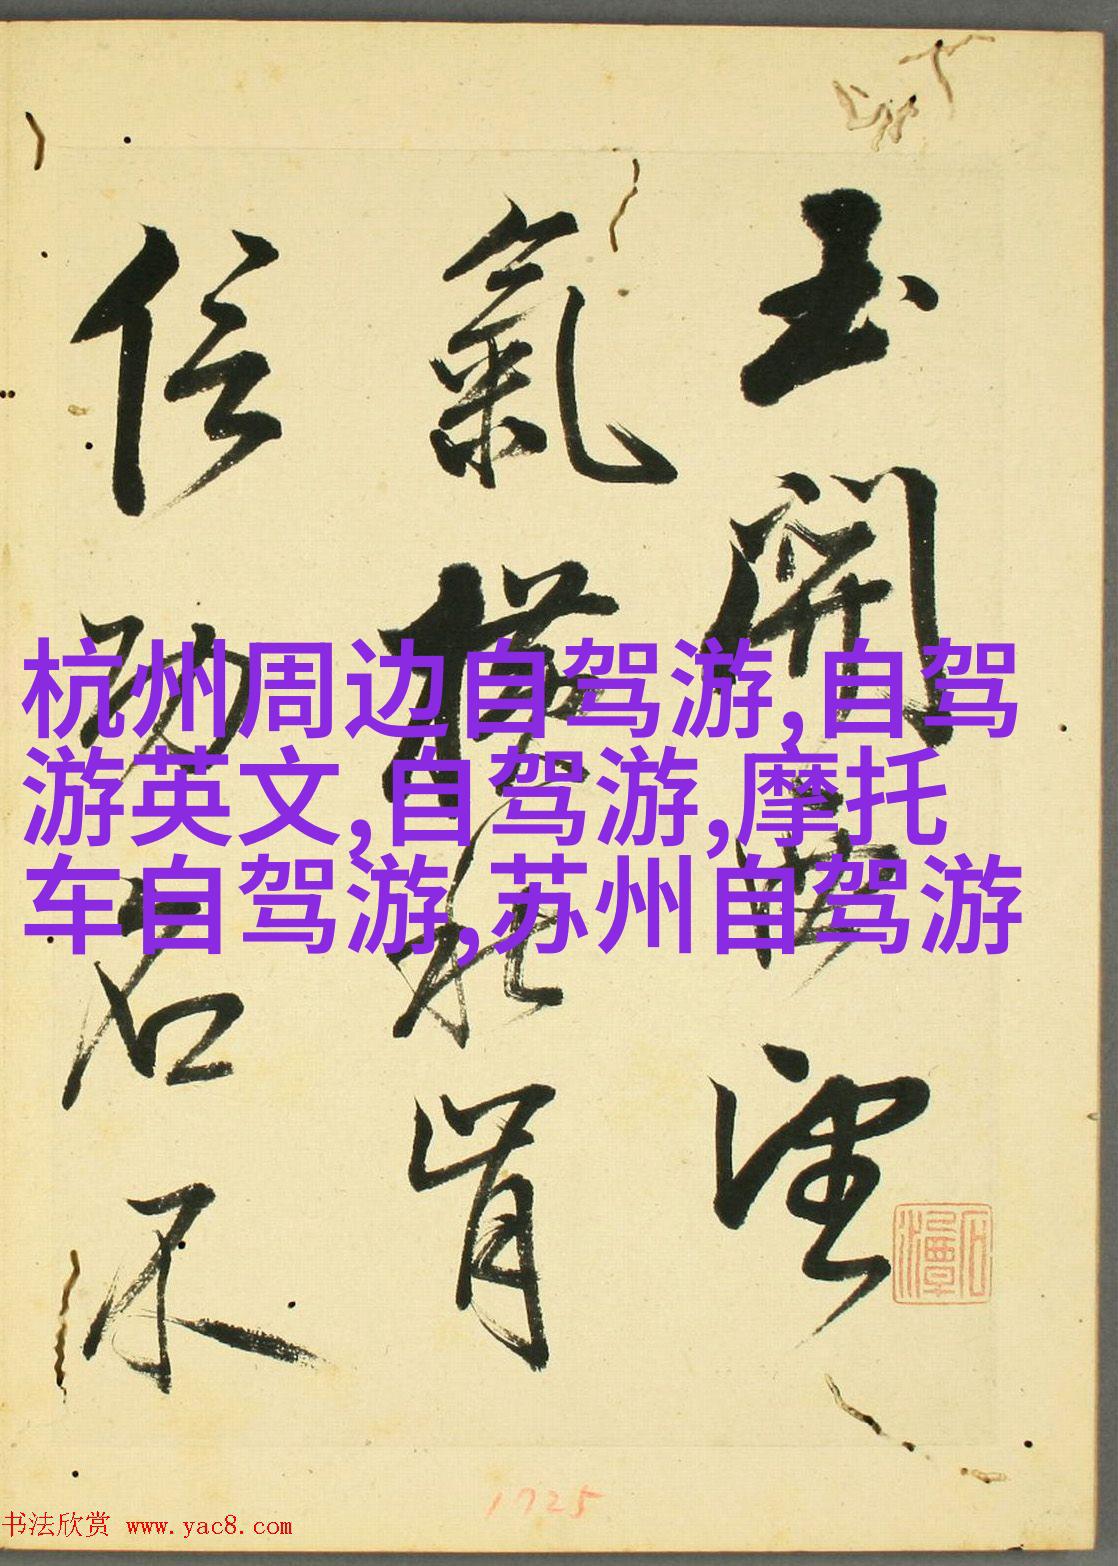 玉關西望
氣橫秋肯
信功名不
杭州周边自驾游,自驾
游英文,自驾游,摩托
车自驾游,苏州自驾游
1725
书法欣赏 www.yac8.com